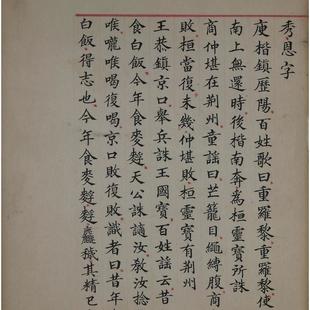 秀恩字
庾楷鎮歷陽百姓歌曰重羅黎重羅黎使
南上無還時後楷南奔為桓靈寶所誅
商仲堪在荊州童謠曰芒籠目繩縛腹商
敗桓當復未幾仲堪敗桓靈寶有荊州
王恭鎮京口舉兵誅王國寶百姓謡云昔
食白飯今年食麥天公誅謫汝教汝捻
喉嚨喉喝復喝京口敗復敗識者曰昔年
白飯得志也今年食麥麤穢其精已